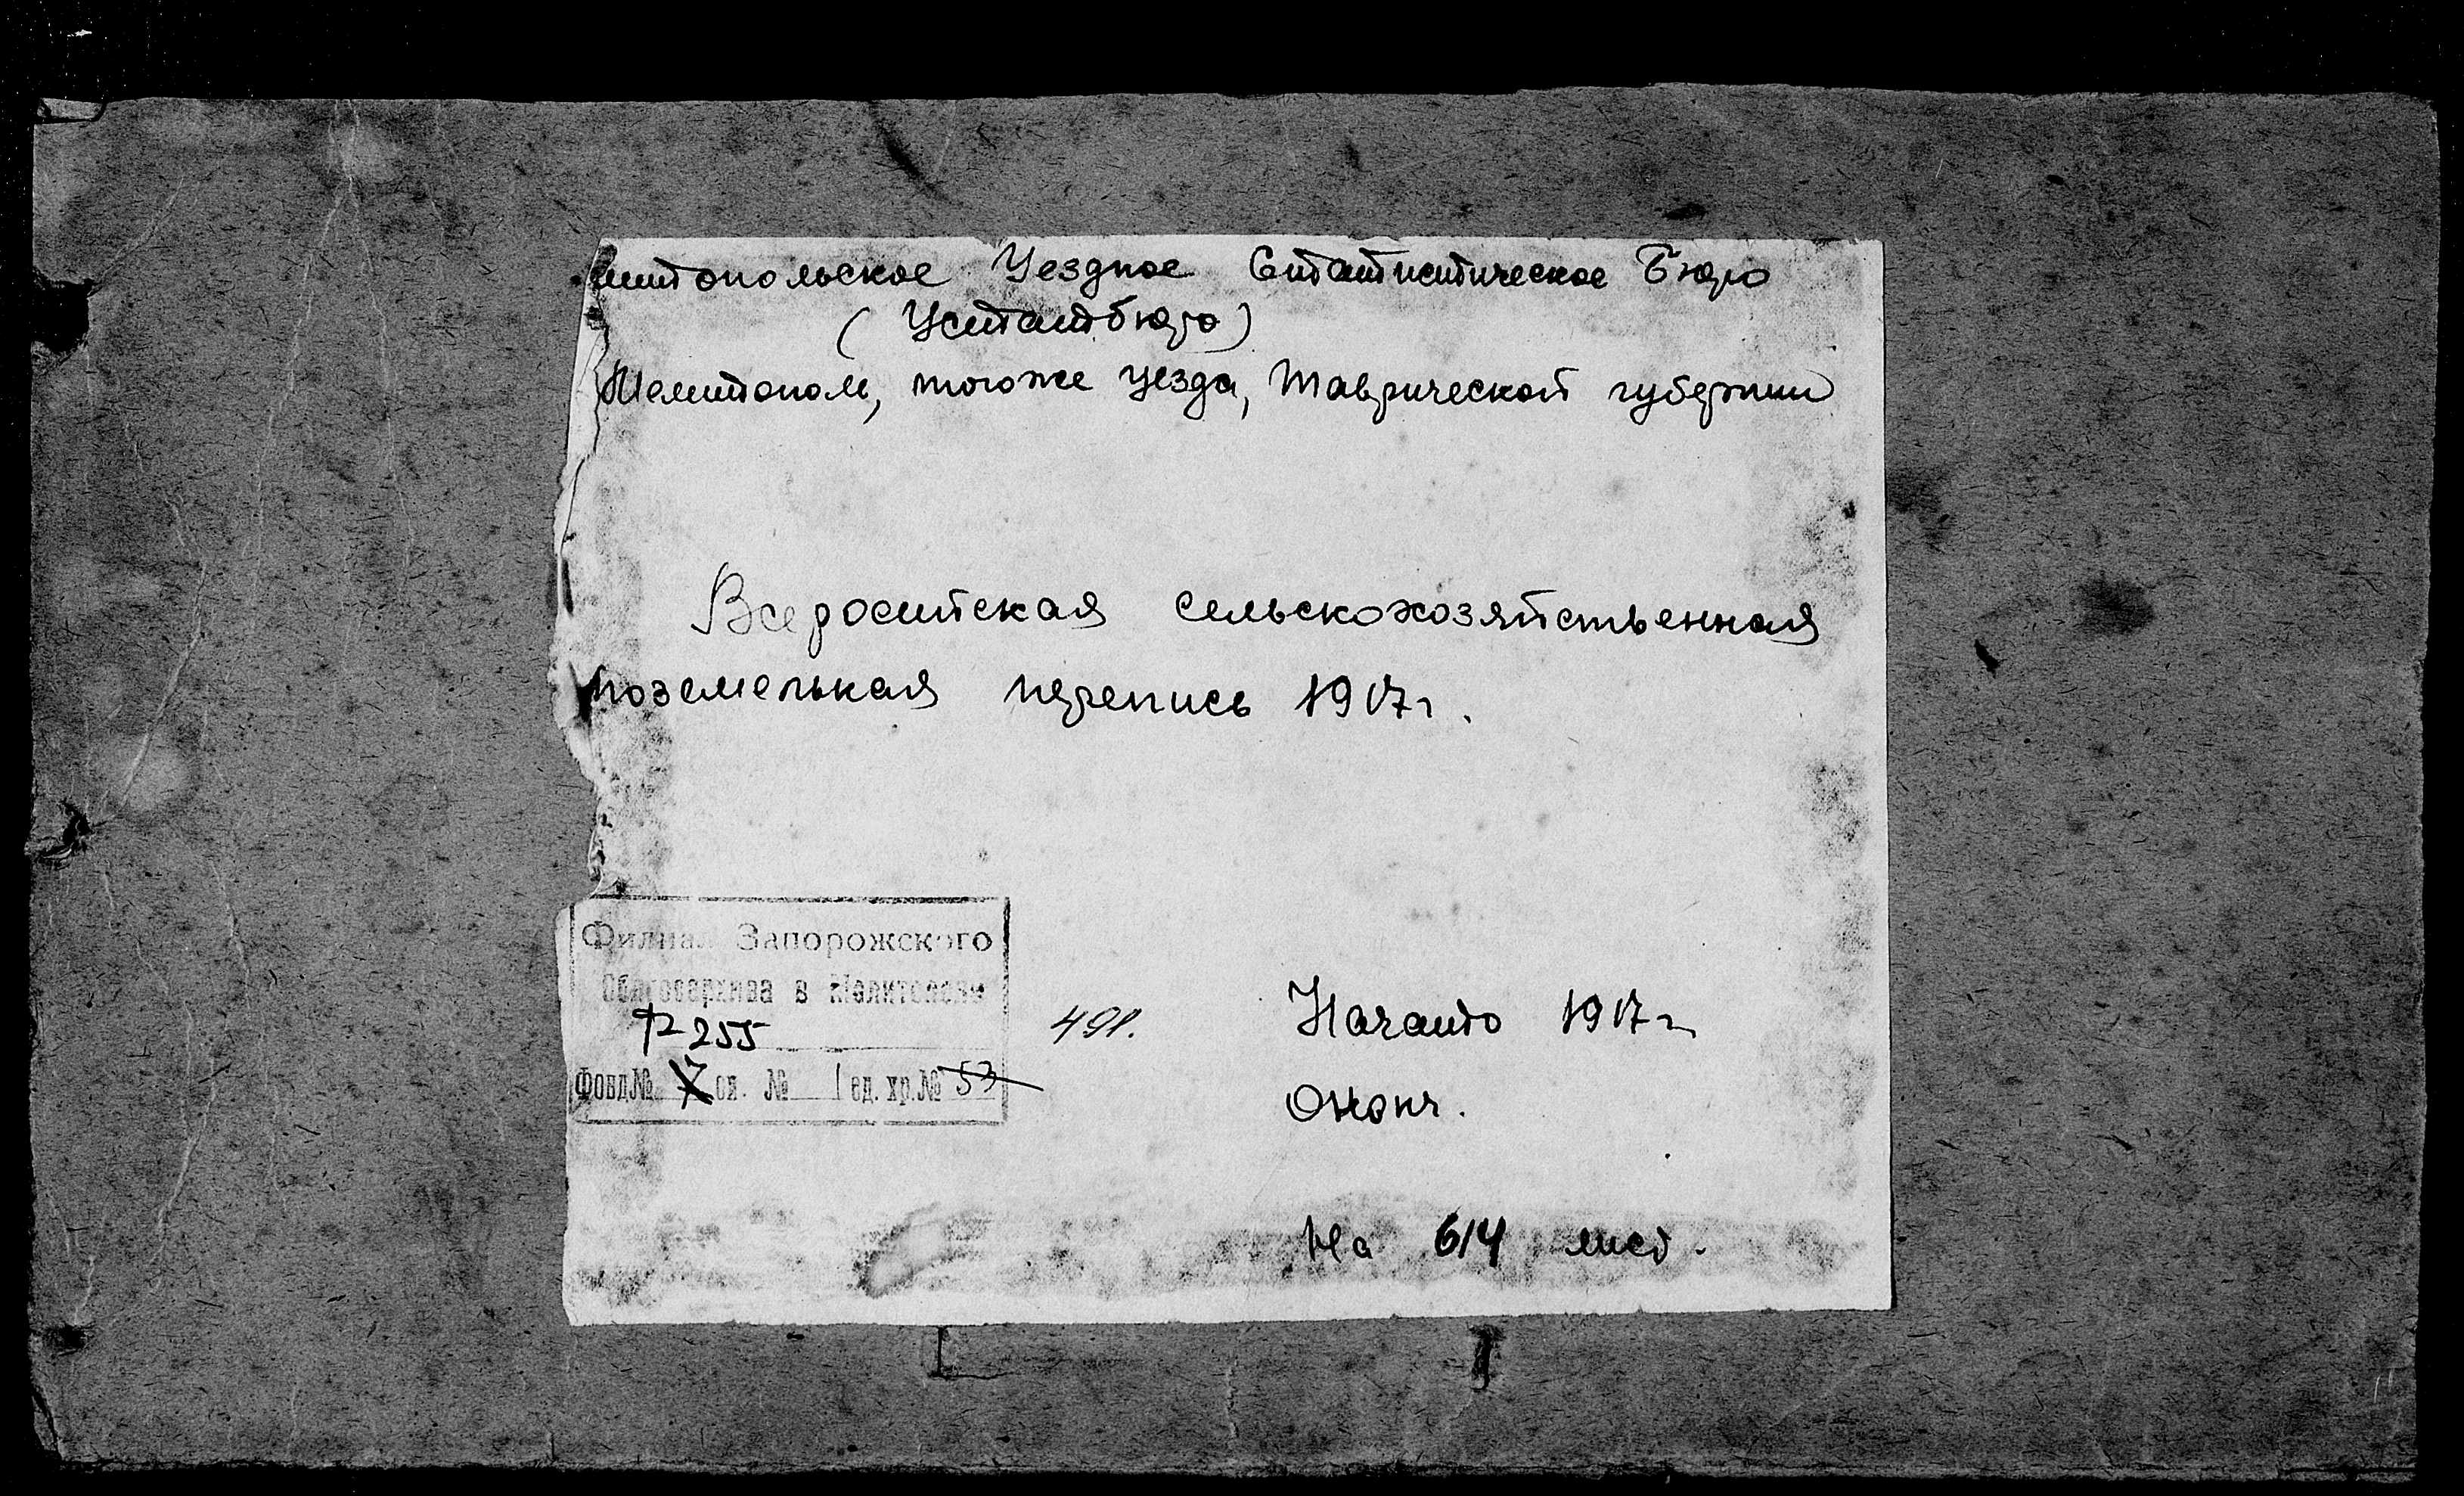 литопольское Уездное Статистическое Бюро
(Устатбюро)
Мелитополь, того же уезда, Таврической губернии
Всеросийская сельскохозяйственная
поземельная перепись 1917г.
Филиал Запорожского
Облгосархива в Мелитополе
Р255
491.
Начато 1917г
Фонд № 7 оп. № 1 ед. хр. № 53
Оконч.
На 614 лист.